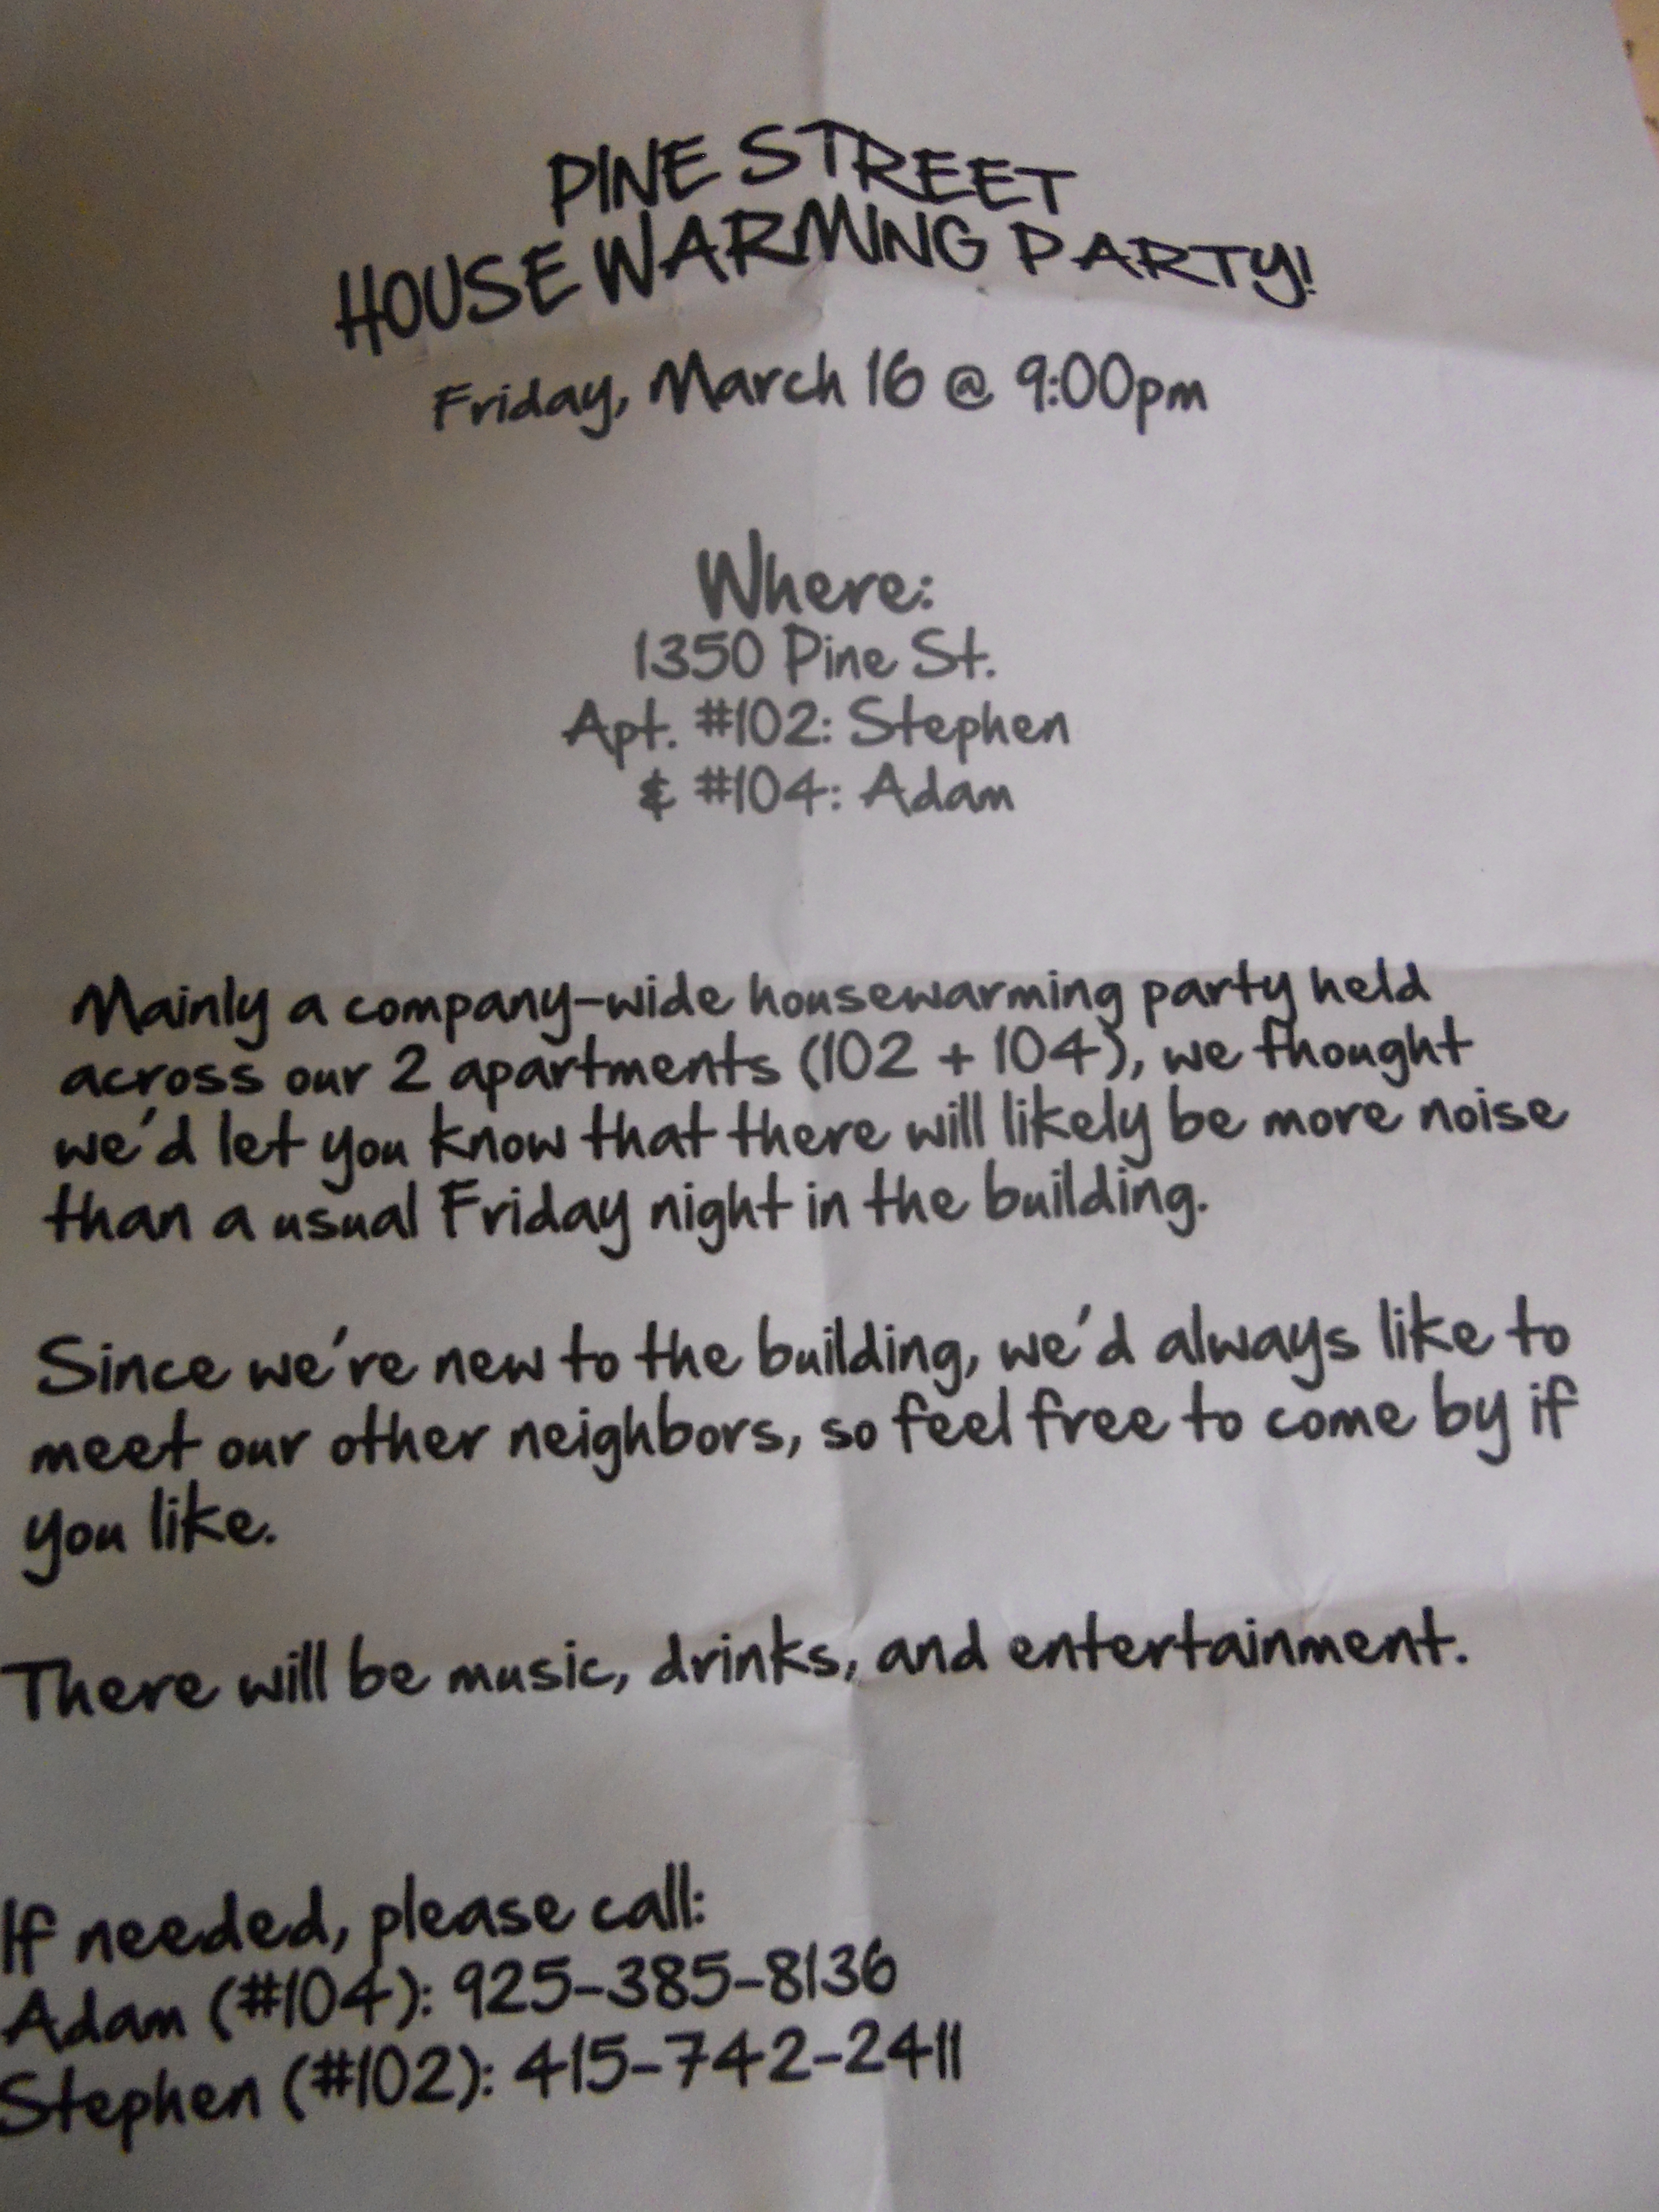 PINE STREET
HOUSE WARMING PARTY!
Friday, March 16 @ 9:00pm
Where:
1350 Pine St.
Apt. #102: Stephen
& #104: Adam
Mainly a company-wide housewarming party held
across our 2 apartments (102 + 104), we thought
we'd let you know that there will likely be more noise
than a usual Friday night in the building.
Since we're new to the building, we'd always like to
meet our other neighbors, so feel free to come by if
you like.
There will be music, drinks, and entertainment.
If needed, please call:
Adam (#104): 925-385-8136
Stephen (#102): 415-742-2411